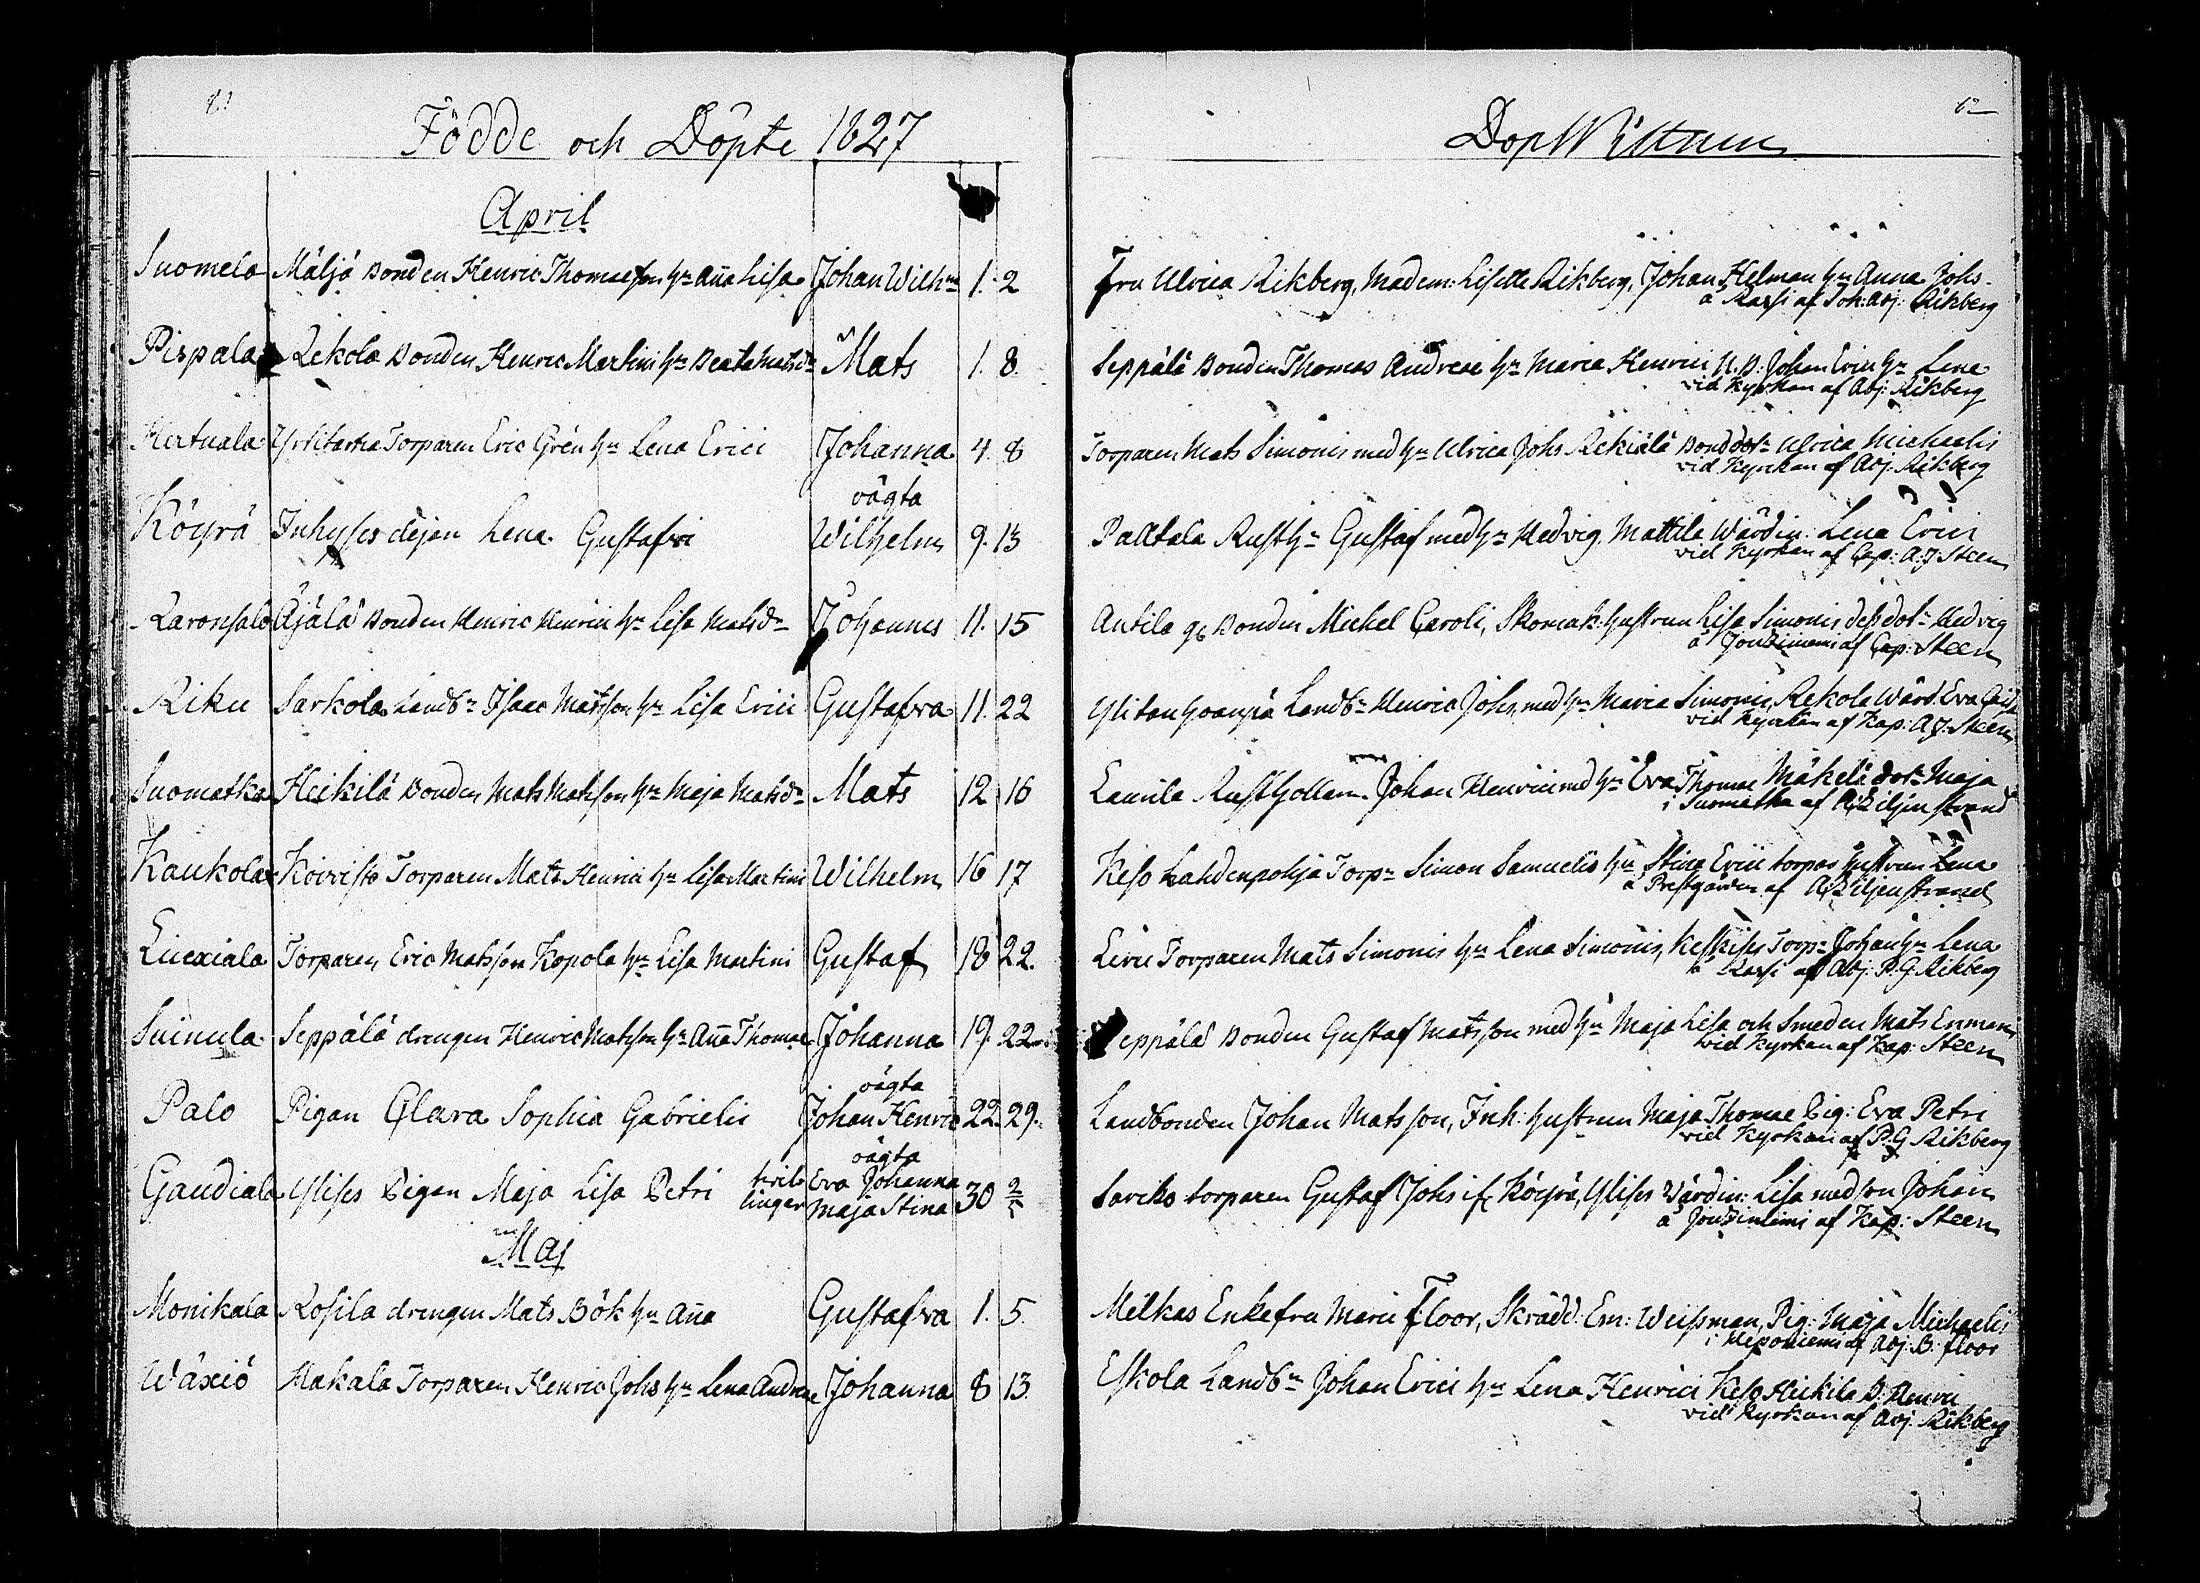 Födde och Döpte 1827
April
Suomela Mäljä Bonden Henric Thomaeson h:u Aña Lisa Johan Wilh:m 1. 2
Pispala Rekola Bonden Henric Martini h:u Beata Matsd:r Mats 1. 8.
Kertuala Torparen Eric Grén h:u Lena Erici Johanna 4. 8
oägta
Köyrä Inhyses dejan Lena Gustafvi Wilhelm 9. 13
Karonsalo Äjälä Bonden Henric Henrici h:u Lisa Matsd:r Johannes 11. 15
Riku Sarkola Landb:n Isaac Matsson h:u Lisa Erici Gustafva 11. 22
Suomatka Heikilä Bonden Mats Matsson h:u Maja Matsd:r Mats 12 16
Kaukola Koivisto Torparen Mats Henrici h:u Lisa Martini Wilhelm 16 17
Liuxiala Torparen Eric Matsson Kopola h:u Lisa Martini Gustaf 18 22.
Suinula Seppälä drengen Henric Matsson h:u Aña Thomae Johanna 19. 22
oägta
Palo Pigan Clara Sophia Gabrielis Johan Henric 22. 29.
oägta
Gaudiala Ylises Pigan Maja Lisa Petri tvil- Eva Johanna 30 2/5
lingar Maja Stina
Maj
Monikala Rosila drengen Mats Bök h:u Aña Gustafva 1. 5.
Wäxiö Hakala Torparen Henric Johs h:u Lena Andreae Johanna 8 13.
62
Dop Wittnen
Fru Ulrica Rikberg, Madem: Lisette Rikberg, Johan Helman h:u Anna Johs.
å Rassi af Adj: Rikberg
Seppälä Bonden Thomas Andreae h:u Maria Henrici N.B. Johan Erici h:u Lena
vid Kyrkan af Adj: Rikberg
Torparen Mats Simonis med h:u Ulrica Johs Rekiälä Bonddot:r Ulrica Michaelis
vid Kyrkan af Adj: Rikberg
Paltala Rusth:n Gustaf med h:u Hedvig, Mattila Wärdin: Lena Erici
vid Kyrkan af Cap: A:J Steen
Antila Bonden Michel Caroli, Skomak: hustrun Lisa Simonis dess dot:r Hedvig
å Joutziniemi af Cap: Steen
Landb:n Henric Johs, med h:u Maria Simonis, Rekola Wärd: Eva
vid Kyrkan af Kap: A:J: Steen
Laurila Rusthollarn Johan Henrici med h:u Eva Thomae Mäkelä dot:r Maja
i Suomatka af A: Ziljenstrand
Keso Lahdenpohja Torp:n Simon Samuelis h:u Stina Erici torpar hustrun Lena
å Prestgården af A: Ziljenstrand
Torparen Mats Simonis h:u Lena Simonis, Keskises Torp:n Johan h:u Lena
å Rassi af Adj: P.G. Rikberg
Seppälä Bonden Gustaf Matsson med h:u Maja Lisa och Smeden Mats Enman
vid Kyrkan af Kap: Steen
Landbonden Johan Matsson, Inh: hustrun Maja Thomae Pig: Eva Petri
vid Kyrkan af P.G Rikberg
Saviko torparen Gustaf Johs if. Köyrä, Ylises Wärdin: Lisa med son Johan
å Joutziniemi af Kap: Steen
Melkas Enkefru Marie Floor, Skrädd: Em: Weissman, Pig: Maja Michaelis
i Heponiemi af Adj: B: Floor
Eskola Landb:n Johan Erici h:u Lena Henrici Keso Heikila D: Henric
vid Kyrkan af Adj: Rikberg